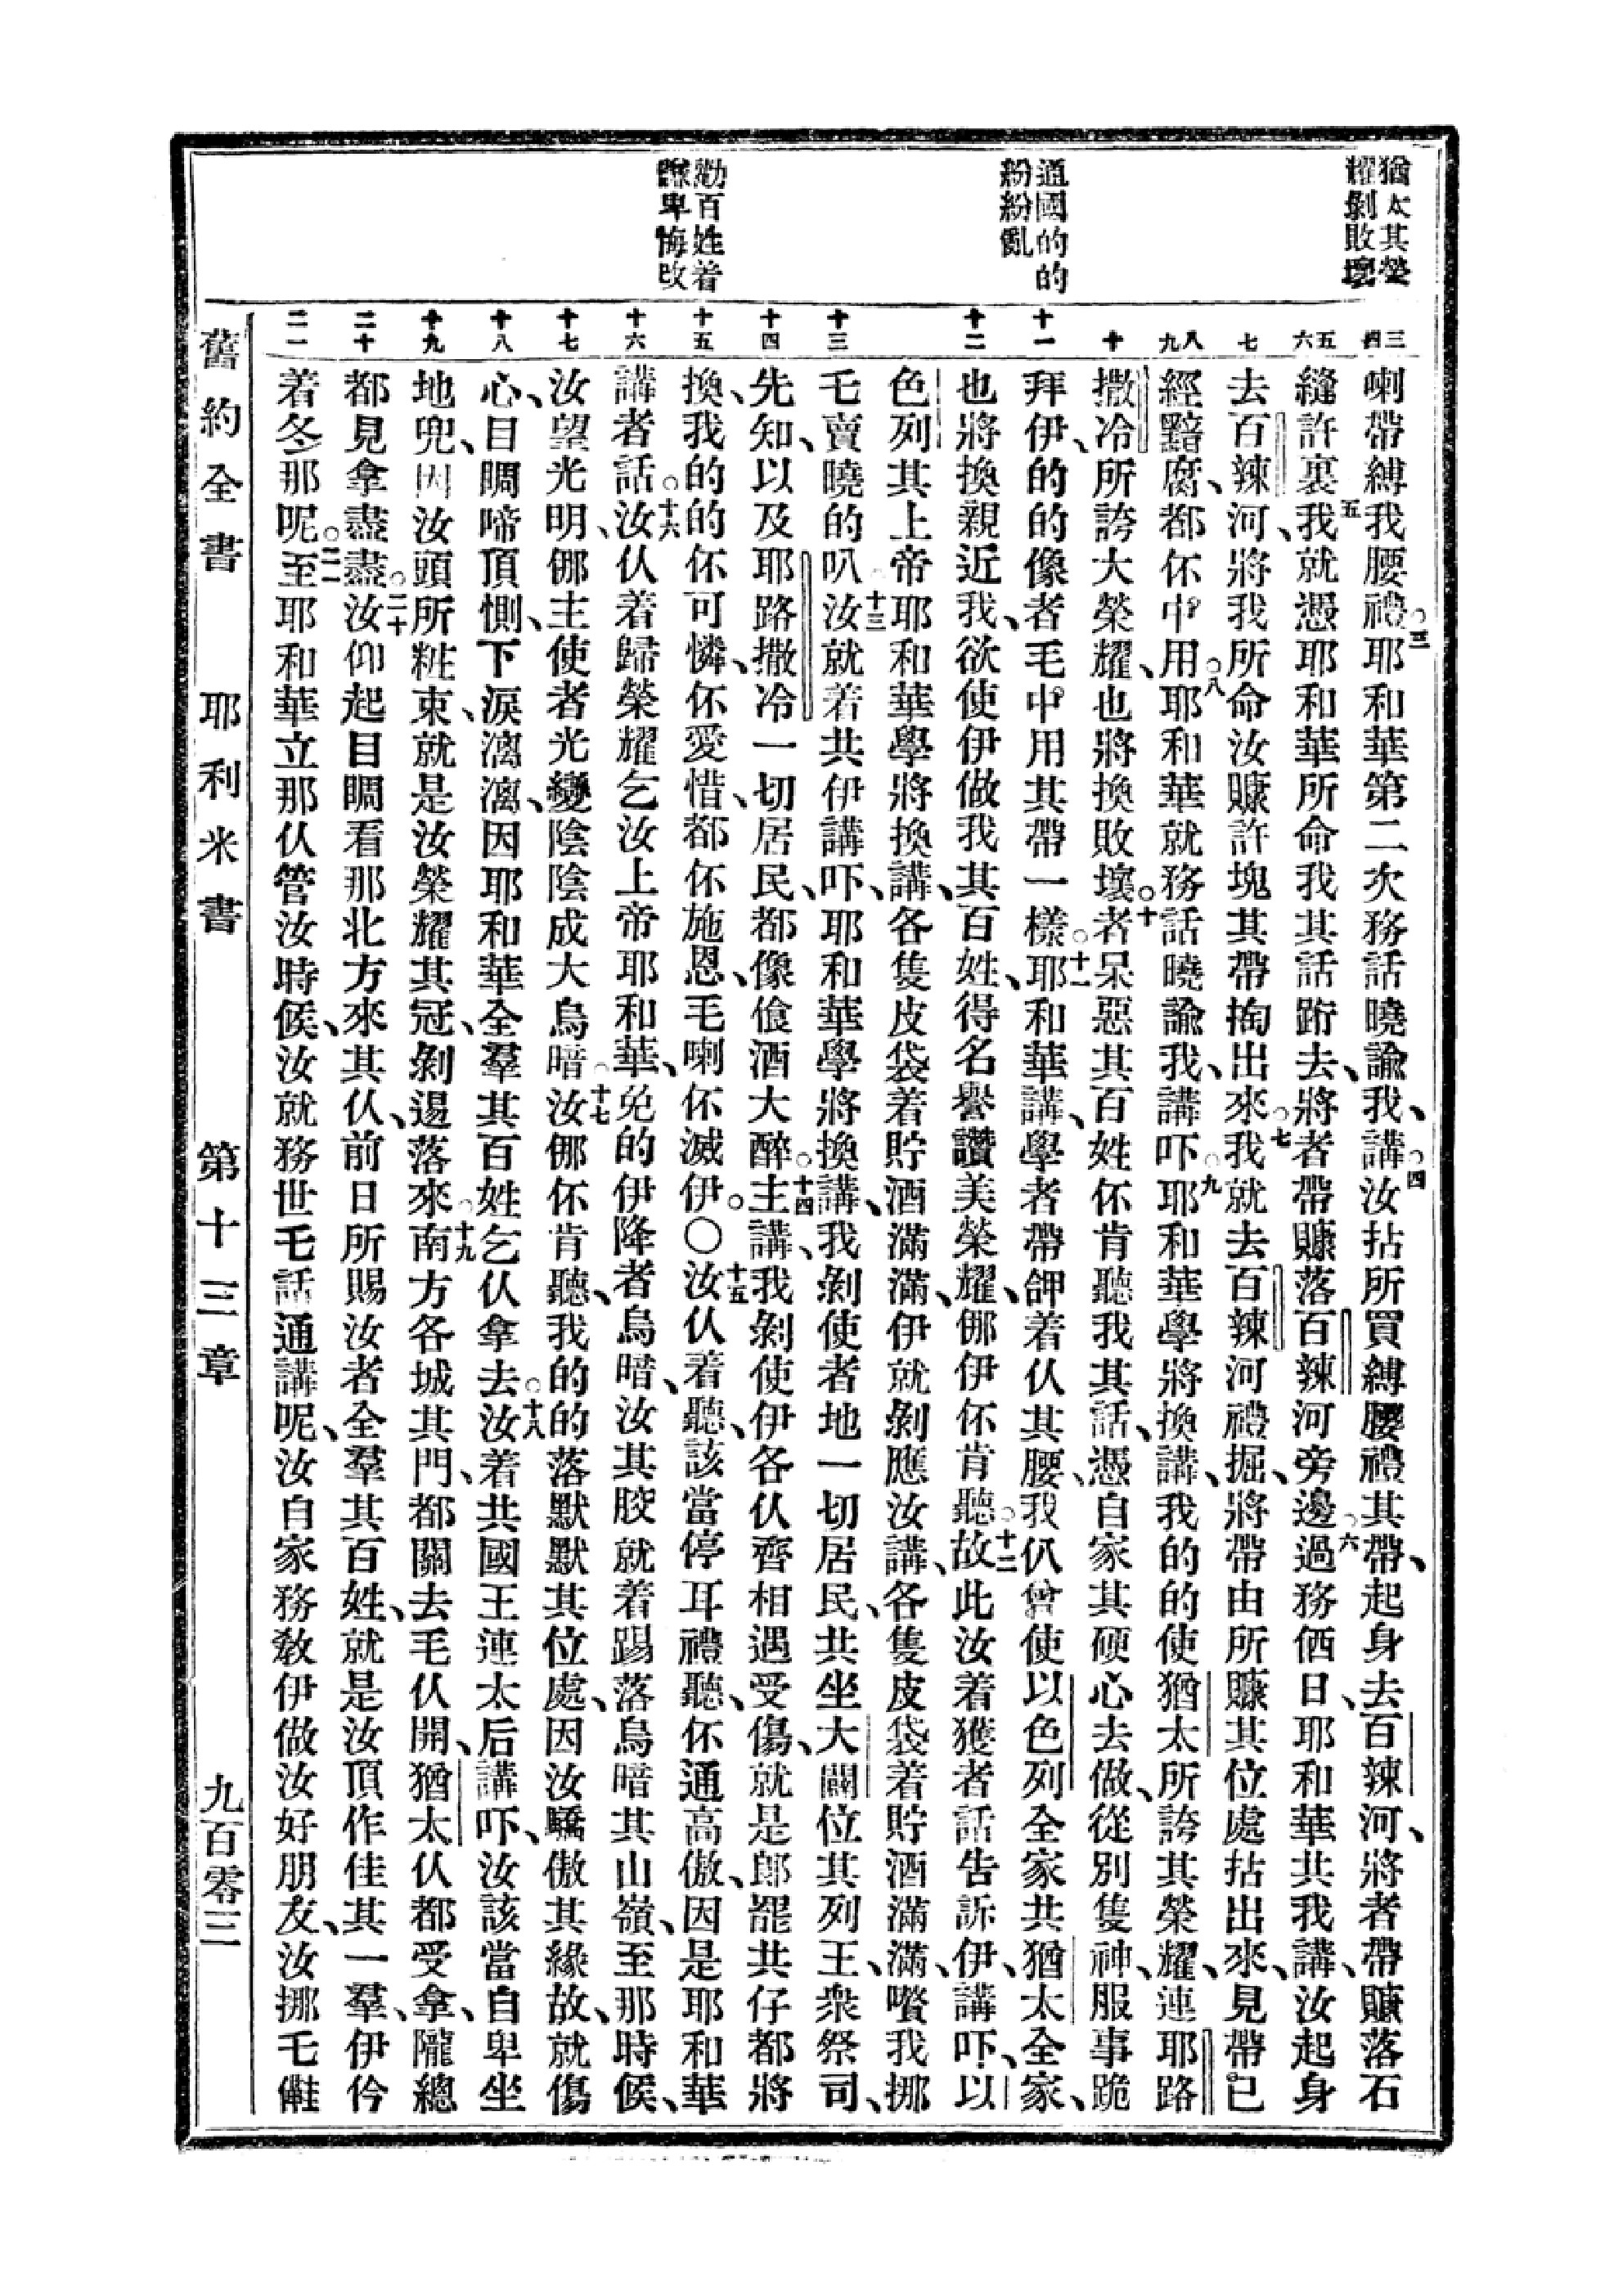 猶太其榮
耀剝敗壞
通國的的
紛紛亂
勸百姓着
謙卑悔改
三 四
五 六
七
八 九
十
十一
十二
十三
十四
十五
十六
十七
十八
十九
二十
二一
喇帶縛我腰禮○三耶和華第二次務話曉諭我、講○四汝拈所買縛腰禮其帶、起身去百辣河、將者帶賺落石
縫許裏五我、就憑耶和華所命我其話跔去、將者帶賺落百辣河旁邊○六過務伵日、耶和華共我講、汝起身
去百辣河將我所命汝賺許塊其帶掏出來○七我就去百辣河禮掘、將帶由所賺其位處拈出來、見帶已
經黯腐、都伓中用○八耶和華就務話曉諭我、講吓○九耶和華學將換講、我的的使猶太所誇其榮耀、連耶路
撒冷所誇大榮耀、也將換敗壞。十者呆惡其百姓伓肯聽我其話、憑自家其硬心去做、從別隻神、服事跪
拜伊、的的像者毛中用其帶一樣○十一耶和華講、學者帶𤖼着仈其腰、我仈曾使以色列全家共猶太全家、
也將換親近我、欲使伊做我其百姓、得名譽讚美榮耀、倻伊伓肯聽○十二故此汝着獲者話告訴伊、講吓、以
色列其上帝耶和華學將換講、各隻皮袋着貯酒滿滿、伊就剝應汝講、各隻皮袋着貯酒滿滿、嘬我挪
毛賣曉的叭○十三汝就着共伊講吓、耶和華學將換講、我剝使者地一切居民、共坐大闢位其列王、衆祭司、
先知、以及耶路撒冷一切居民、都像飲酒大醉○十四主講、我剝使伊各仈齊相遇受傷、就是郎罷共仔都將
換、我的的伓可憐、伓愛惜、都伓施恩、毛喇伓滅伊。○十五汝仈着聽、該當停耳禮聽、伓通高傲、因是耶和華
講者話○十六汝仈着歸榮耀乞汝上帝耶和華、免的伊降者烏暗、汝其骹就着踢落烏暗其山嶺、至那時候、
汝望光明、倻主使者光變陰陰成大烏暗○十七汝倻伓肯聽、我的的落默默其位處、因汝驕傲其緣故、就傷
心、目睭啼頂惻、下淚漓漓、因耶和華全羣其百姓乞仈拿去○十八汝着共國王連太后講吓、汝該當自卑坐
地兜、因汝頭所粧束、就是汝榮耀其冠、剝逿落來○十九南方各城其門、都關去毛仈開、猶太仈都受拿、隴總
都見拿盡盡○二十汝仰起目睭看那北方來其仈、前日所賜汝者全羣其百姓、就是汝頂作佳其一羣、伊仱
着冬那呢○二一至耶和華立那仈管汝時候、汝就務世毛話通講呢、汝自家務敎伊做汝好朋友、汝挪毛𠍿
舊約全書 耶利米書 第十三章 九百零三